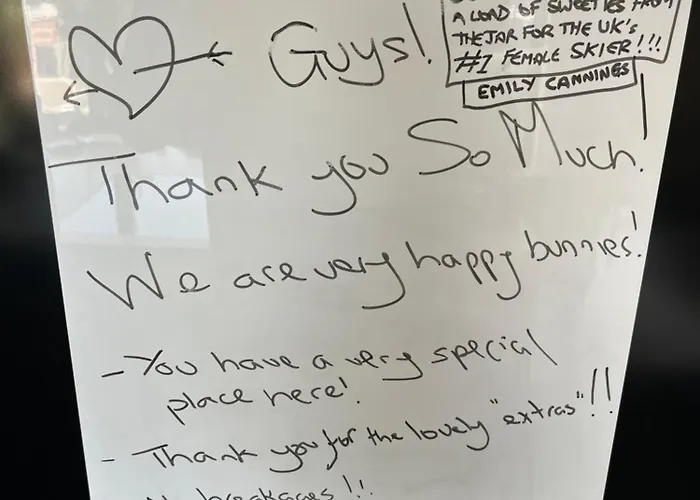 Guys!
A LOAD OF SWEETIES FROM
THE JAR FOR THE UK's
#1 FEMALE SKIER!!!
EMILY CANNINGS
Thank you So Much!
We are very happy bunnies!
- You have a very special
place here!
- Thank you for the lovely "extras"!!
breakages!!